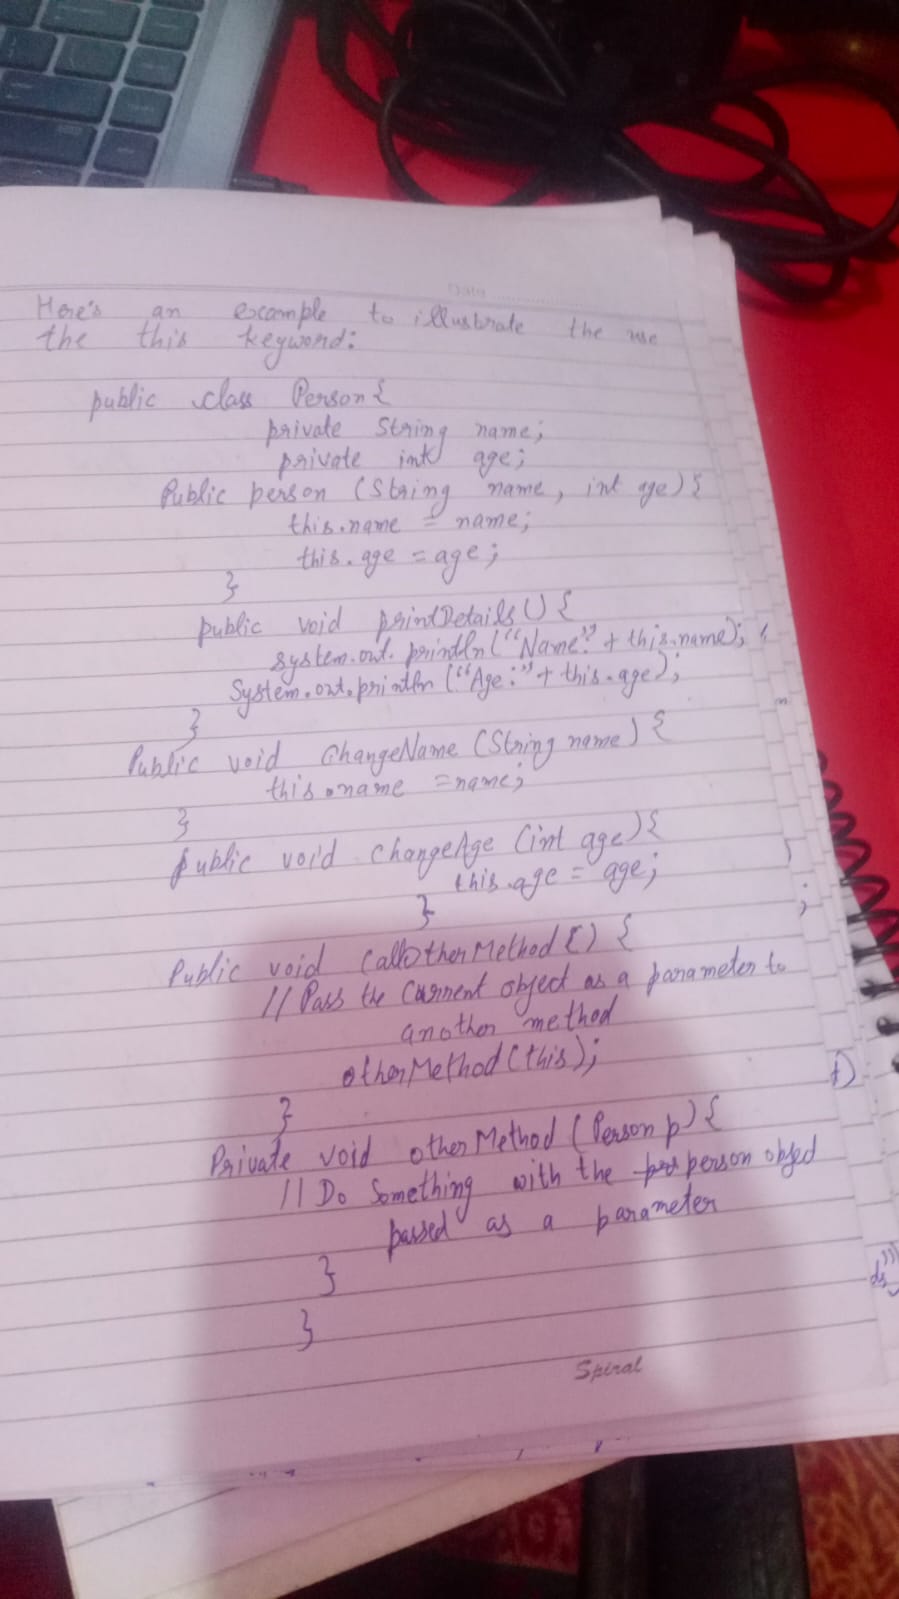 Date
Here's an example to illustrate the use
the this keyword:
public class Person {
private String name;
private int age;
Public person (String name, int age) {
this.name = name;
this.age = age;
}
public void printDetails () {
system.out.println ("Name:" + this.name);
System.out.println ("Age:" + this.age);
}
Public void ChangeName (String name) {
this.name = name;
}
public void changeAge (int age) {
this.age = age;
}
Public void CallOtherMethod () {
// Pass the Current object as a parameter to
another method
otherMethod (this);
}
Private void otherMethod (Person p) {
// Do Something with the person object
passed as a parameter
}
}
Spiral